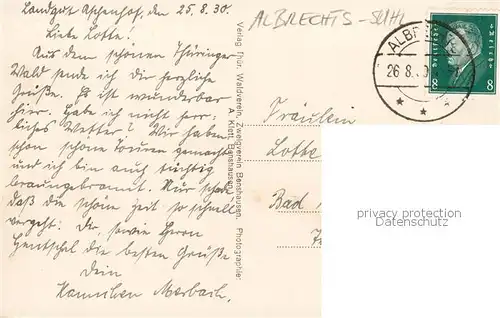 Landgut Aschenhof, den 25.8.30.
Liebe Lotte!
Aus dem schönen Thüringer
Wald sende ich dir herzliche
Grüße. Es ist wunderbar
hier. Habe ich nicht herr-
liches Wetter? Wir haben
schon schöne Touren gemacht
und ich bin auch tüchtig
braungebrannt. Nur schade
daß die schöne Zeit so schnell
vergeht. Dir, sowie Herrn
Hentschel die besten Grüße
Dein
Hannchen Merbach.
Verlag Thür. Waldverein, Zweigverein Benshausen. Photographie:
A. Klett, Benshausen.
ALBRECHTS - SUHL
ALBR
26.8.
Deutsches Reich
8 8
Fräulein
Lotte
Bad
privacy protection
Datenschutz